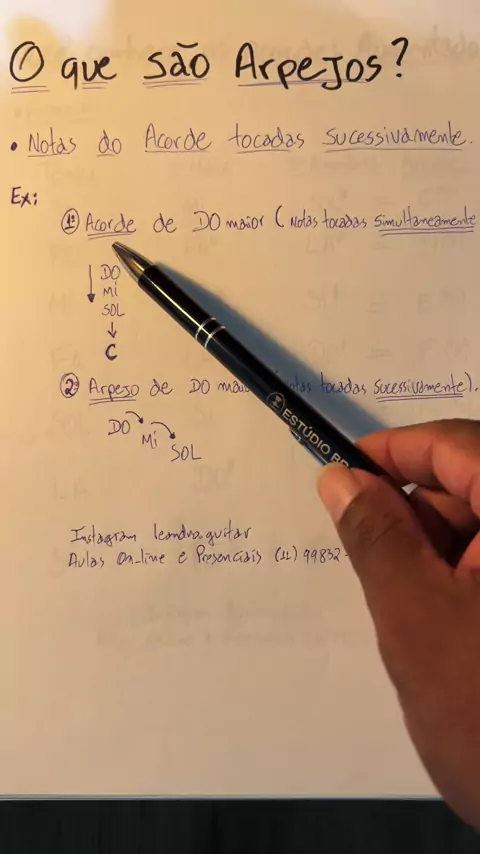 O que são Arpejos?
• Notas do Acorde tocadas sucessivamente.
Ex:
1º Acorde de DO maior (Notas tocadas simultaneamente
DO
Mi
SOL
C
2º Arpejo de DO tocadas sucessivamente).
DO Mi SOL
ESTÚDIO
Instagram leandro.guitar
Aulas On-line e Presenciais (11) 99832-